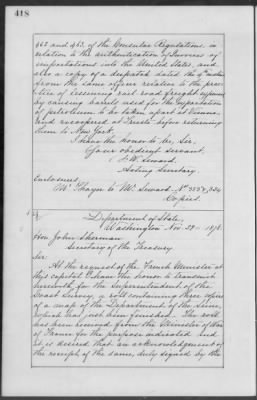 418
462 and 463, of the Consular Regulations in
relation to the authentication of Invoices of
importations into the United States, and
also a copy of a despatch dated the 9th ultimo
from the same officer relative to the prac-
tice of lessening rail road freight expenses
by causing barrels used for the exportation
of petroleum to be taken apart at Vienna,
and recoopered at Trieste before returning
them to New York.
I have the honor to be, Sir,
Your obedient servant,
F. W. Seward.
Acting Secretary
Enclosures.
Mr Thayer to Mr. Seward.
Copies.
Department of State,
Washington Nov. 29. 1878.
Hon John Sherman
Secretary of the Treasury
Sir:
At the request of the French Minister at
this capital I have the honor to transmit
herewith for the Superintendent of the
Coast Survey, a roll containing three copies
of a map of the Department of the Seine,
which has just been finished. The roll
has been received from the Minister of War
of France for the purpose indicated and
it is desired that an acknowledgement of
the receipt of the same, duly signed by the